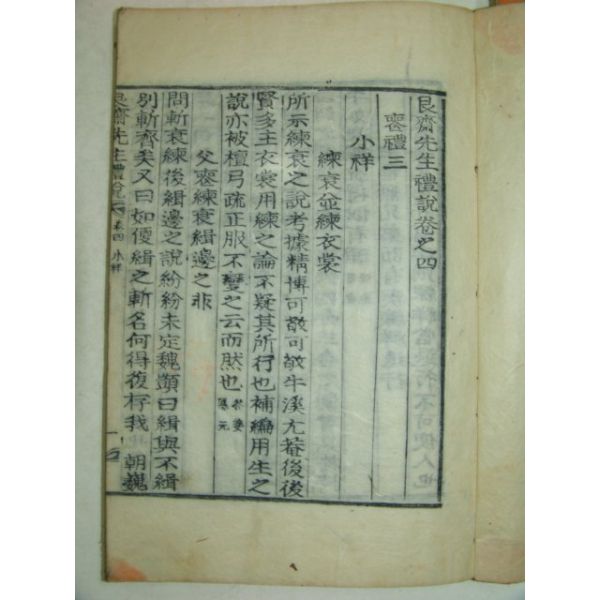 艮齋先生禮說卷之四
喪禮三
小祥
練衰並練衣裳
所示練衰之說考據精博可敬可敬牛溪尤菴後後
賢多主衣裳用練之論不疑其所行也補編用生之
說亦被檀弓疏正服不變之云而然也 答姜
父喪練衰緝邊之非
問斬衰練後緝邊之說紛紛未定魏顥曰緝與不緝
別斬齊矣又曰如便緝之斬名何得復存哉 朝巍
艮齋先生禮說 卷四 小祥